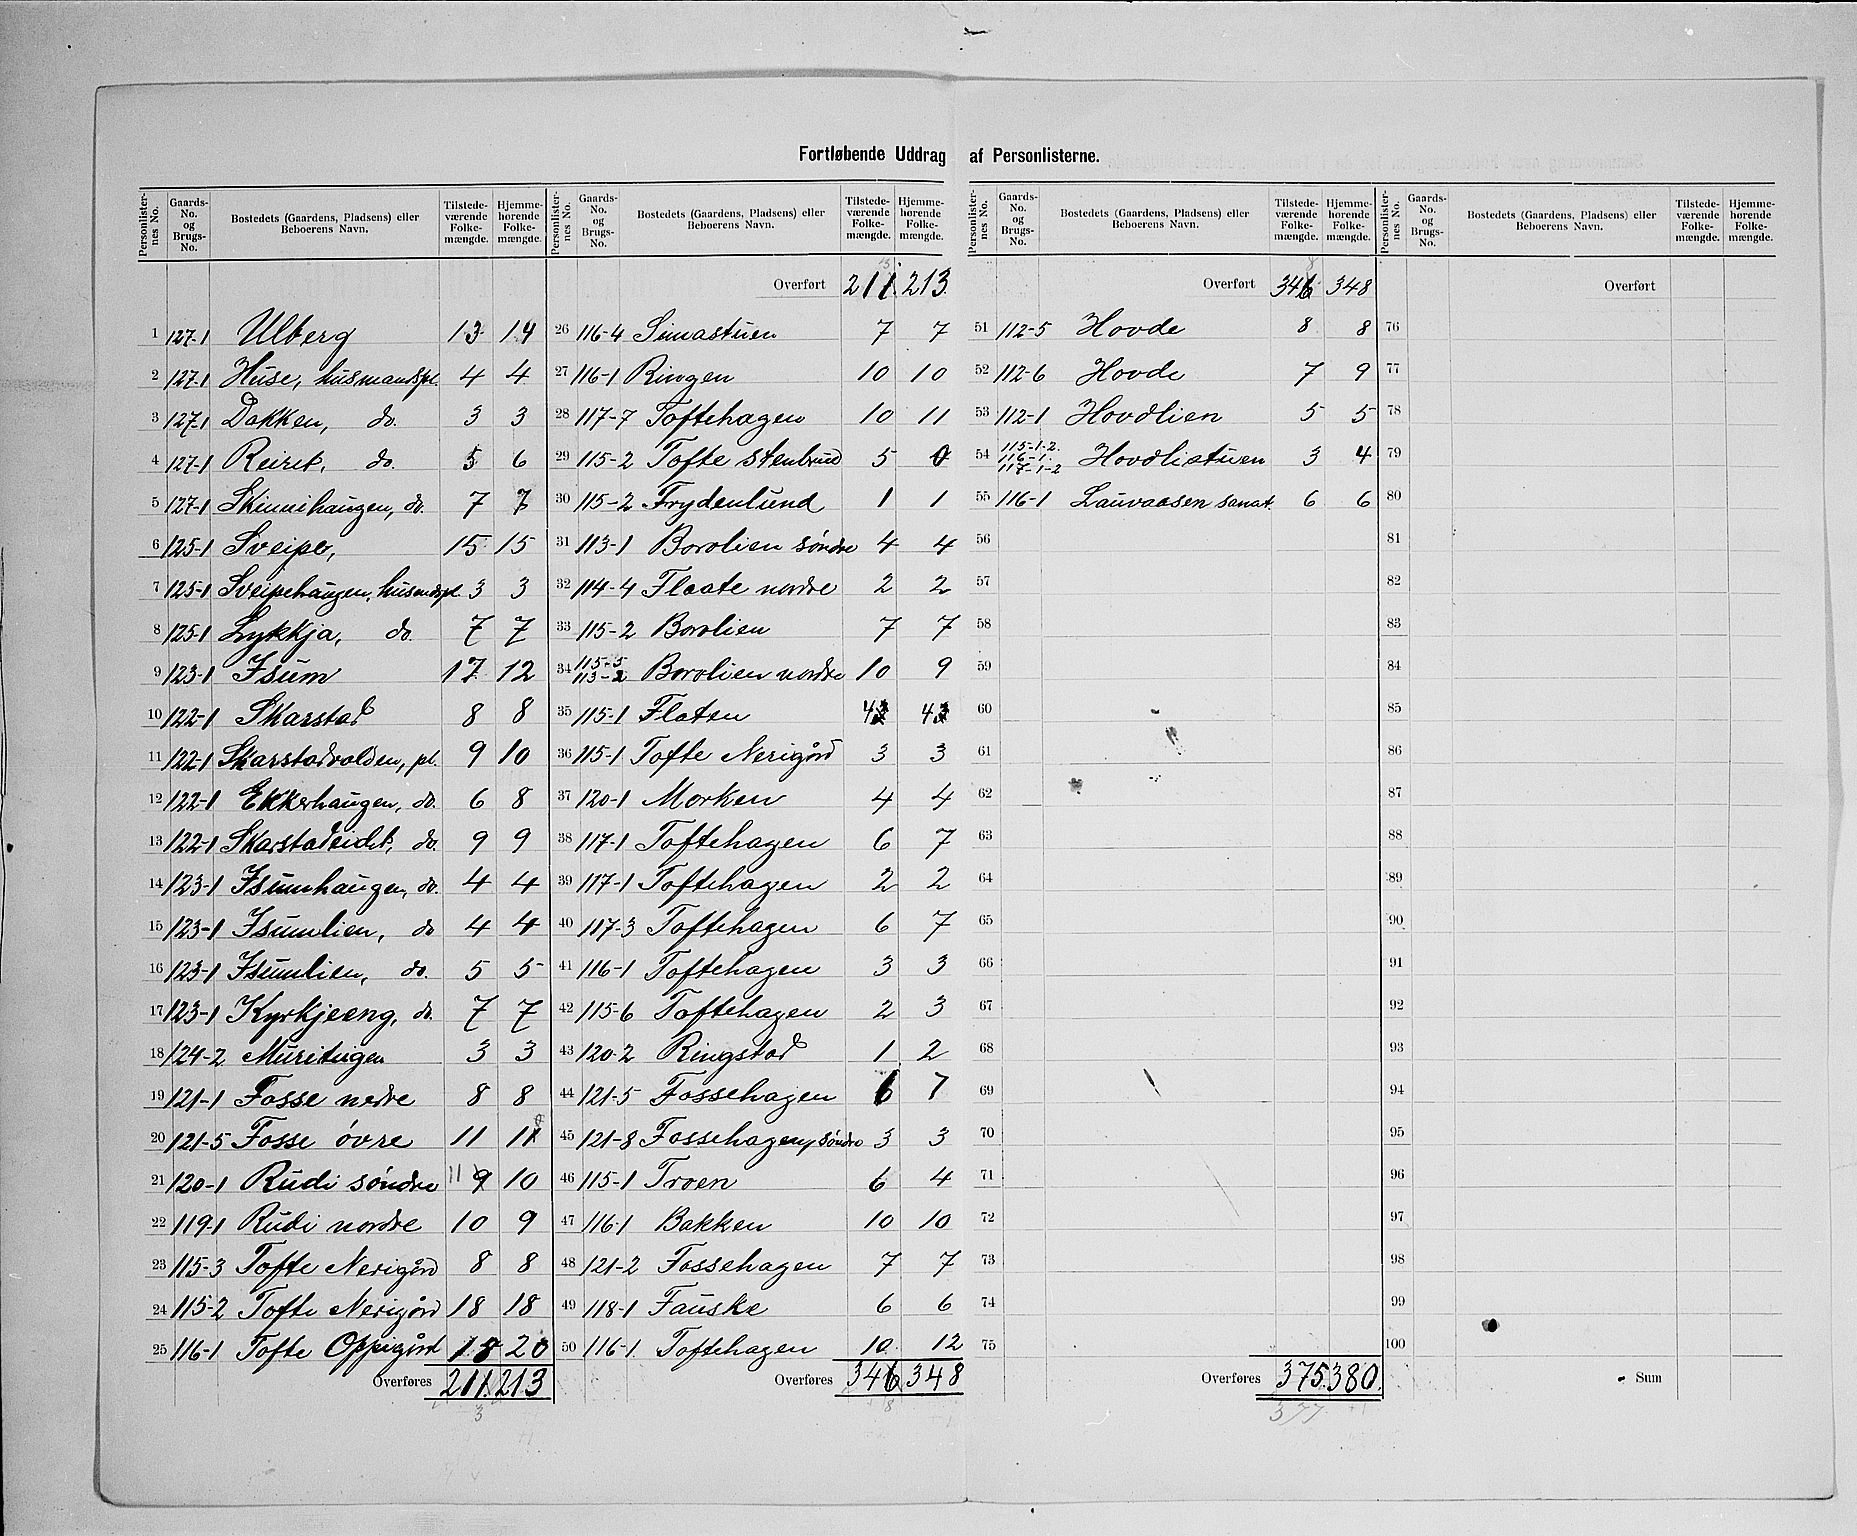 Fortløbende Uddrag af Personlisterne.
Personlisternes No. Gaards-No. og Brugs-No. Bostedets (Gaardens, Pladsens) eller Beboerens Navn. Tilstedeværende Folkemængde. Hjemmehørende Folkemængde.
1 127-1 Ulberg 13 14
2 127-1 Huse, husmandspl. 4 4
3 127-1 Dokken, do. 3 3
4 127-1 Reiret, do. 5 6
5 127-1 Skinnihaugen, do. 7 7
6 125-1 Sveipe, 15 15
7 125-1 Sveipehaugen, husmdspl 3 3
8 125-1 Lykkja, do. 7 7
9 123-1 Isum 17 12
10 122-1 Skarstad 8 8
11 122-1 Skarstadvolden, pl. 9 10
12 122-1 Ekkerhaugen, do. 6 8
13 122-1 Skarstadeidet, do. 9 9
14 123-1 Isumhaugen, do. 4 4
15 123-1 Isumlien, do 4 4
16 123-1 Isumlien, do. 5 5
17 123-1 Kyrkjeeng, do. 7 7
18 124-2 3 3
19 121-1 Fosse nedre 8 8
20 121-5 Fosse øvre 11 11
21 120-1 Rudi søndre 11 9 10
22 119-1 Rudi nordre 10 9
23 115-3 Tofte Nerigård 8 8
24 115-2 Tofte Nerigård 18 18
25 116-1 Tofte Oppigård 18 20
Overføres 211 213
3
Personlisternes No. Gaards-No. og Brugs-No. Bostedets (Gaardens, Pladsens) eller Beboerens Navn. Tilstedeværende Folkemængde. Hjemmehørende Folkemængde.
13
Overført 211 213
26 116-4 Simastuen 7 7
27 116-1 Ringen 10 10
28 117-7 Toftehagen 10 11
29 115-2 Tofte stenbrud 5 0
30 115-2 Frydenlund 1 1
31 113-1 Borolien søndre 4 4
32 114-4 Flaate nordre 2 2
33 115-2 Borolien 7 7
34 115-5 113-2 Borolien nordre 10 9
35 115-1 Flaten 43 43
36 115-1 Tofte Nerigård 3 3
37 120-1 Morken 4 4
38 117-1 Toftehagen 6 7
39 117-1 Toftehagen 2 2
40 117-3 Toftehagen 6 7
41 116-1 Toftehagen 3 3
42 115-6 Toftehagen 2 3
43 120-2 Ringstad 1 2
44 121-5 Fossehagen 6 7
45 121-8 Fossehagen, søndre 3 3
46 115-1 Troen 6 4
47 116-1 Bakken 10 10
48 121-2 Fossehagen 7 7
49 118-1 Fauske 6 6
50 116-1 Toftehagen 10 12
Overføres 346 348
8
Personlisternes No. Gaards-No. og Brugs-No. Bostedets (Gaardens, Pladsens) eller Beboerens Navn. Tilstedeværende Folkemængde. Hjemmehørende Folkemængde.
8
Overført 346 348
51 112-5 Hovde 8 8
52 112-6 Hovde 7 9
53 112-1 Hovdlien 5 5
54 115-1-2. 116-1. 117-1-2 Hovdlistuen 3 4
55 116-1 Lauvaasen sanat. 6 6
56
57
58
59
60
61
62
63
64
65
66
67
68
69
70
71
72
73
74
75
Overføres 375 380
377
Personlisternes No. Gaards-No. og Brugs-No. Bostedets (Gaardens, Pladsens) eller Beboerens Navn. Tilstedeværende Folkemængde. Hjemmehørende Folkemængde.
Overført
76
77
78
79
80
81
82
83
84
85
86
87
88
89
90
91
92
93
94
95
96
97
98
99
100
Sum